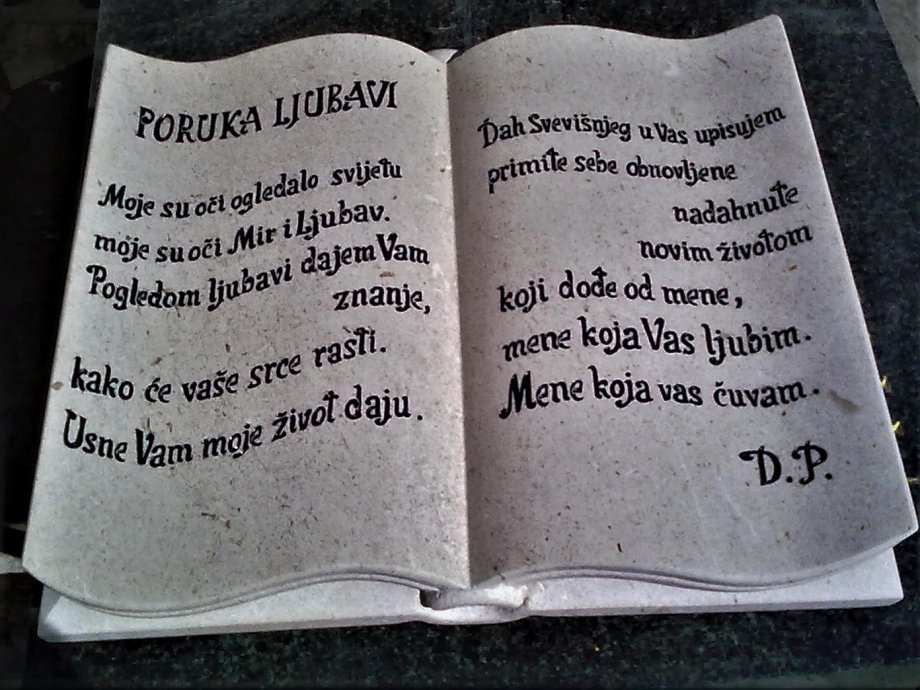 PORUKA LJUBAVI
Moje su oči ogledalo svijetu
moje su oči Mir i Ljubav.
Pogledom ljubavi dajem Vam
znanje,
kako će vaše srce rasti.
Usne Vam moje život daju.
Dah Svevišnjeg u Vas upisujem
primite sebe obnovljene
nadahnute
novim životom
koji dođe od mene,
mene koja Vas ljubim.
Mene koja vas čuvam.
D.P.